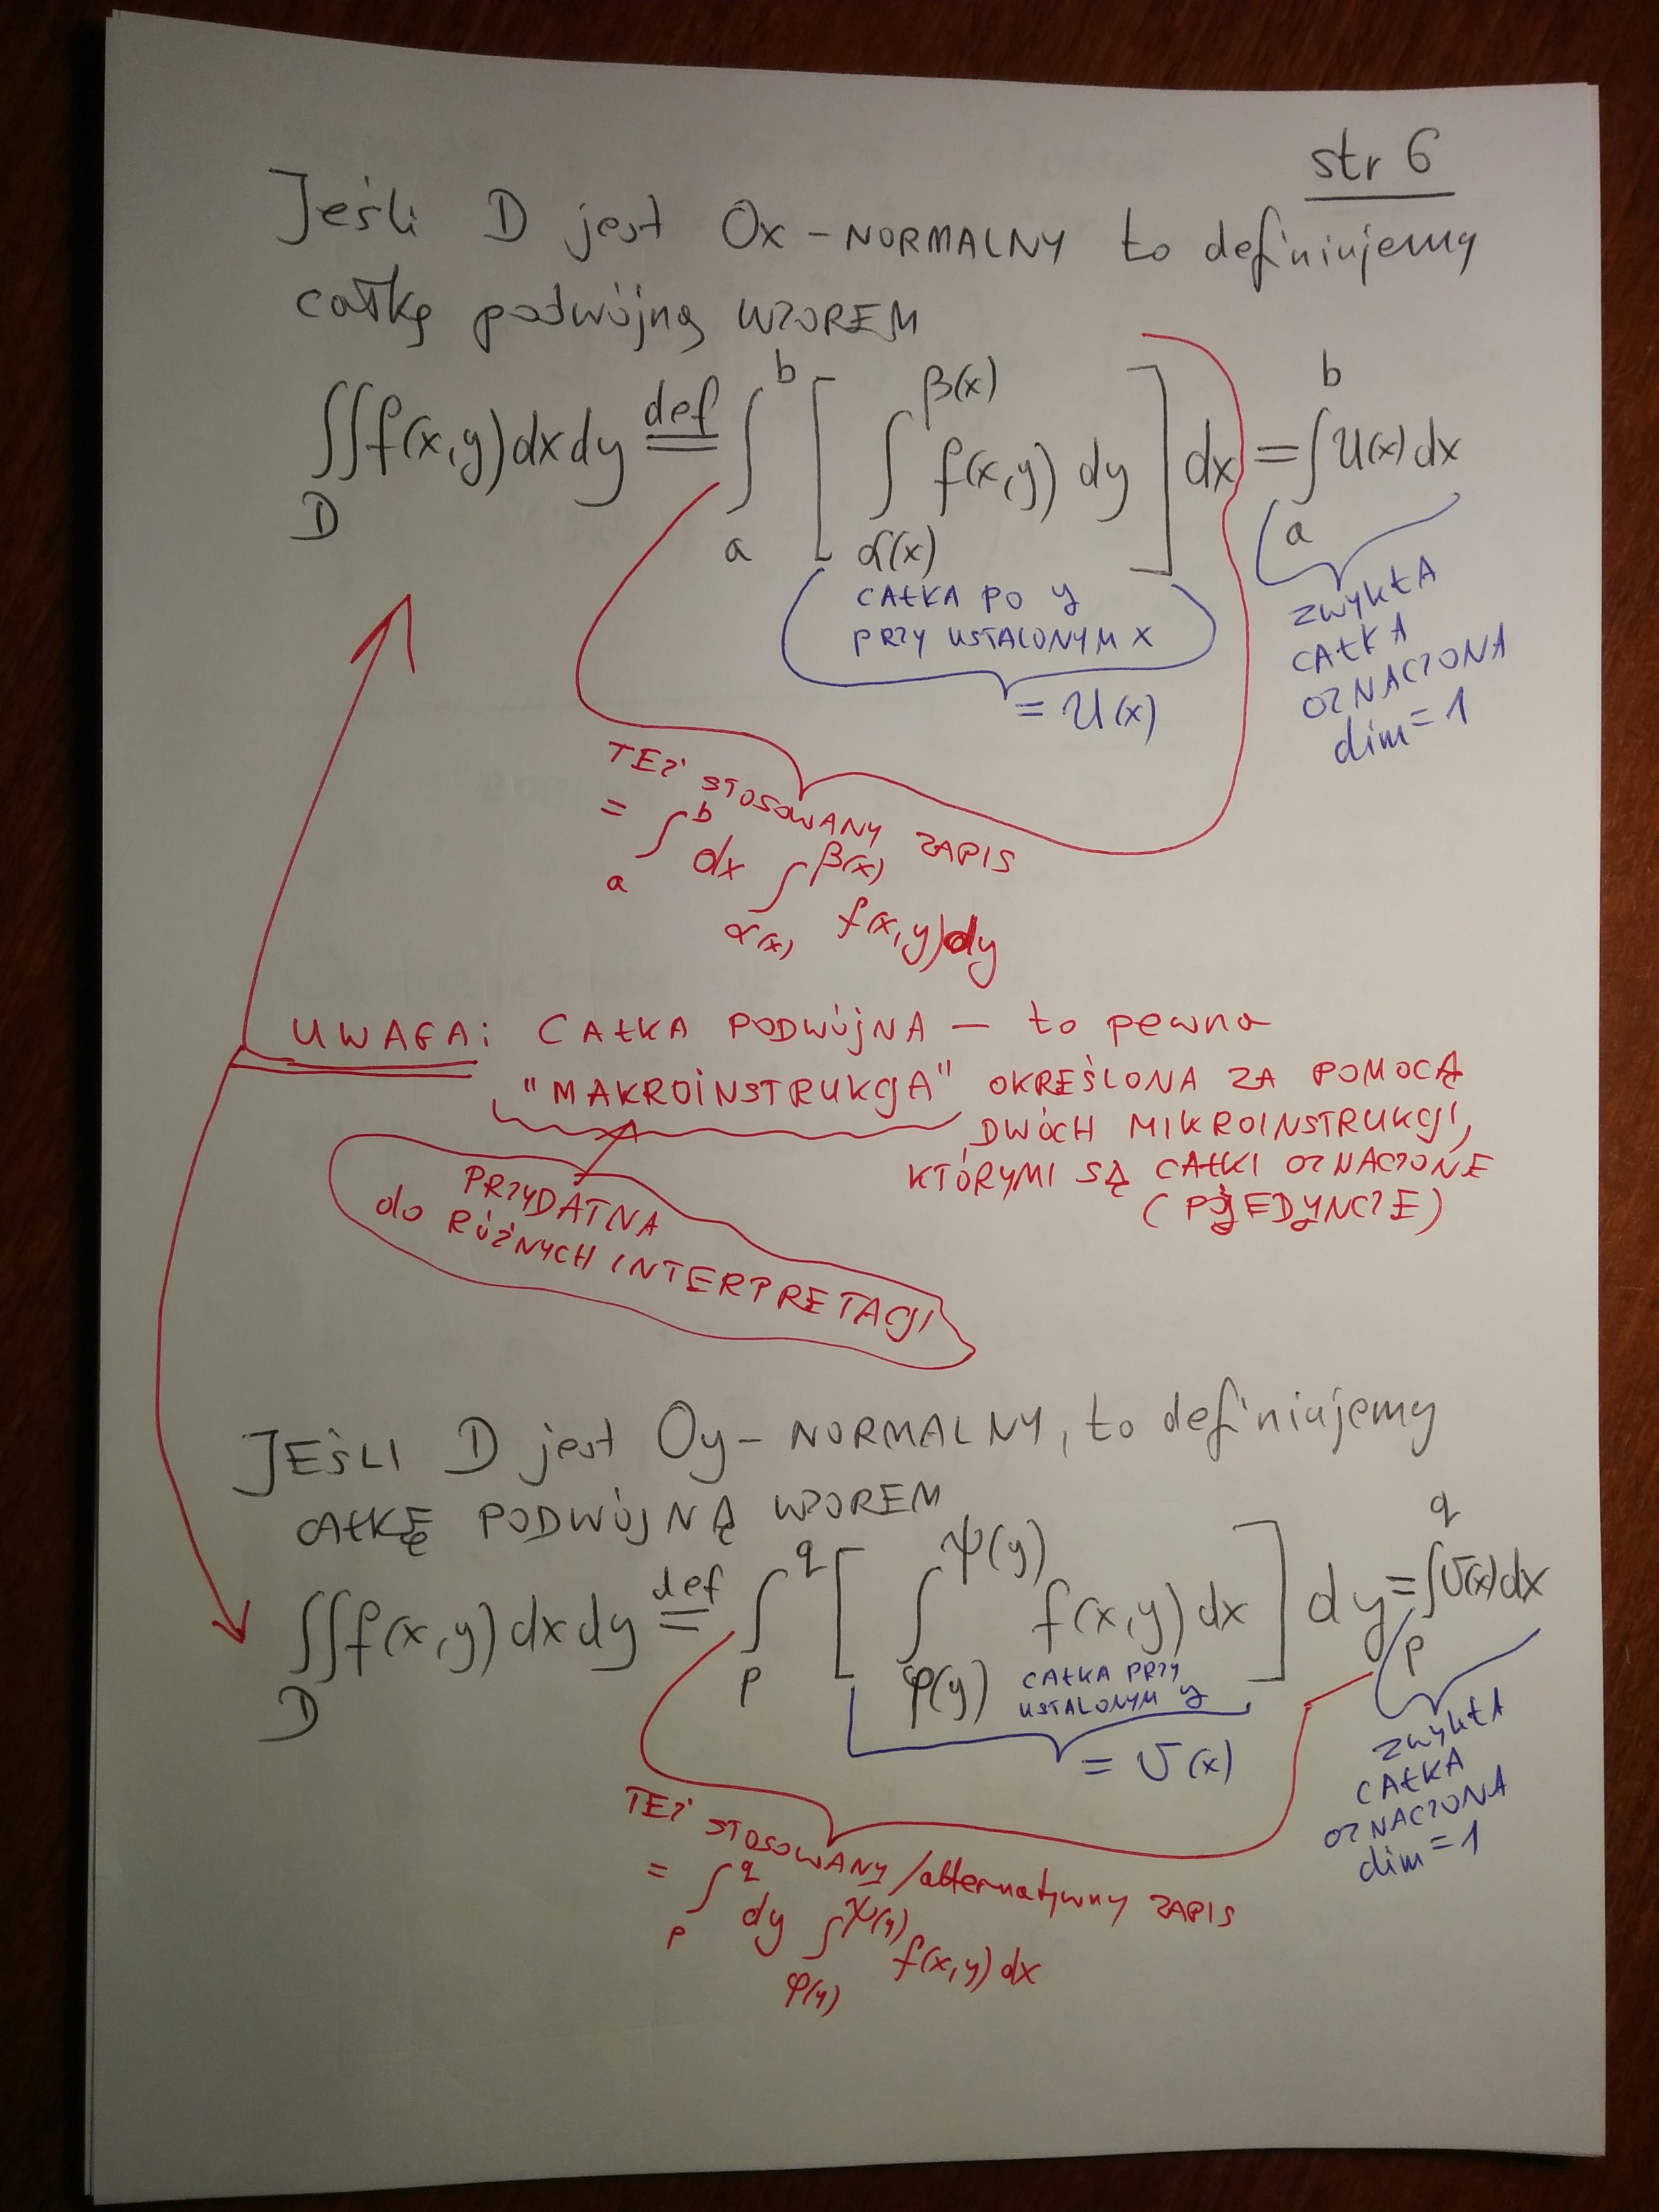 str 6
Jeśli D jest Ox-NORMALNY to definiujemy
całkę podwójną WZOREM
∬_D f(x,y)dxdy \overset{def}{=} ∫_a^b [ ∫_{α(x)}^{β(x)} f(x,y) dy ] dx = ∫_a^b U(x) dx
CAŁKA PO y
PRZY USTALONYM X
= U(x)
ZWYKŁA
CAŁKA
OZNACZONA
dim=1
TEŻ STOSOWANY ZAPIS
= ∫_a^b dx ∫_{α(x)}^{β(x)} f(x,y)dy
UWAGA: CAŁKA PODWÓJNA – to pewna
"MAKROINSTRUKCJA" OKREŚLONA ZA POMOCĄ
DWÓCH MIKROINSTRUKCJI,
KTÓRYMI SĄ CAŁKI OZNACZONE
(POJEDYNCZE)
PRZYDATNA
do RÓŻNYCH INTERPRETACJI
JEŚLI D jest Oy-NORMALNY, to definiujemy
CAŁKĘ PODWÓJNĄ WZOREM
∬_D f(x,y)dxdy \overset{def}{=} ∫_p^q [ ∫_{φ(y)}^{ψ(y)} f(x,y)dx ] dy = ∫_p^q V(x)dx
CAŁKA PRZY
USTALONYM y
= V(x)
ZWYKŁA
CAŁKA
OZNACZONA
dim=1
TEŻ STOSOWANY/alternatywny ZAPIS
= ∫_p^q dy ∫_{φ(y)}^{ψ(y)} f(x,y)dx